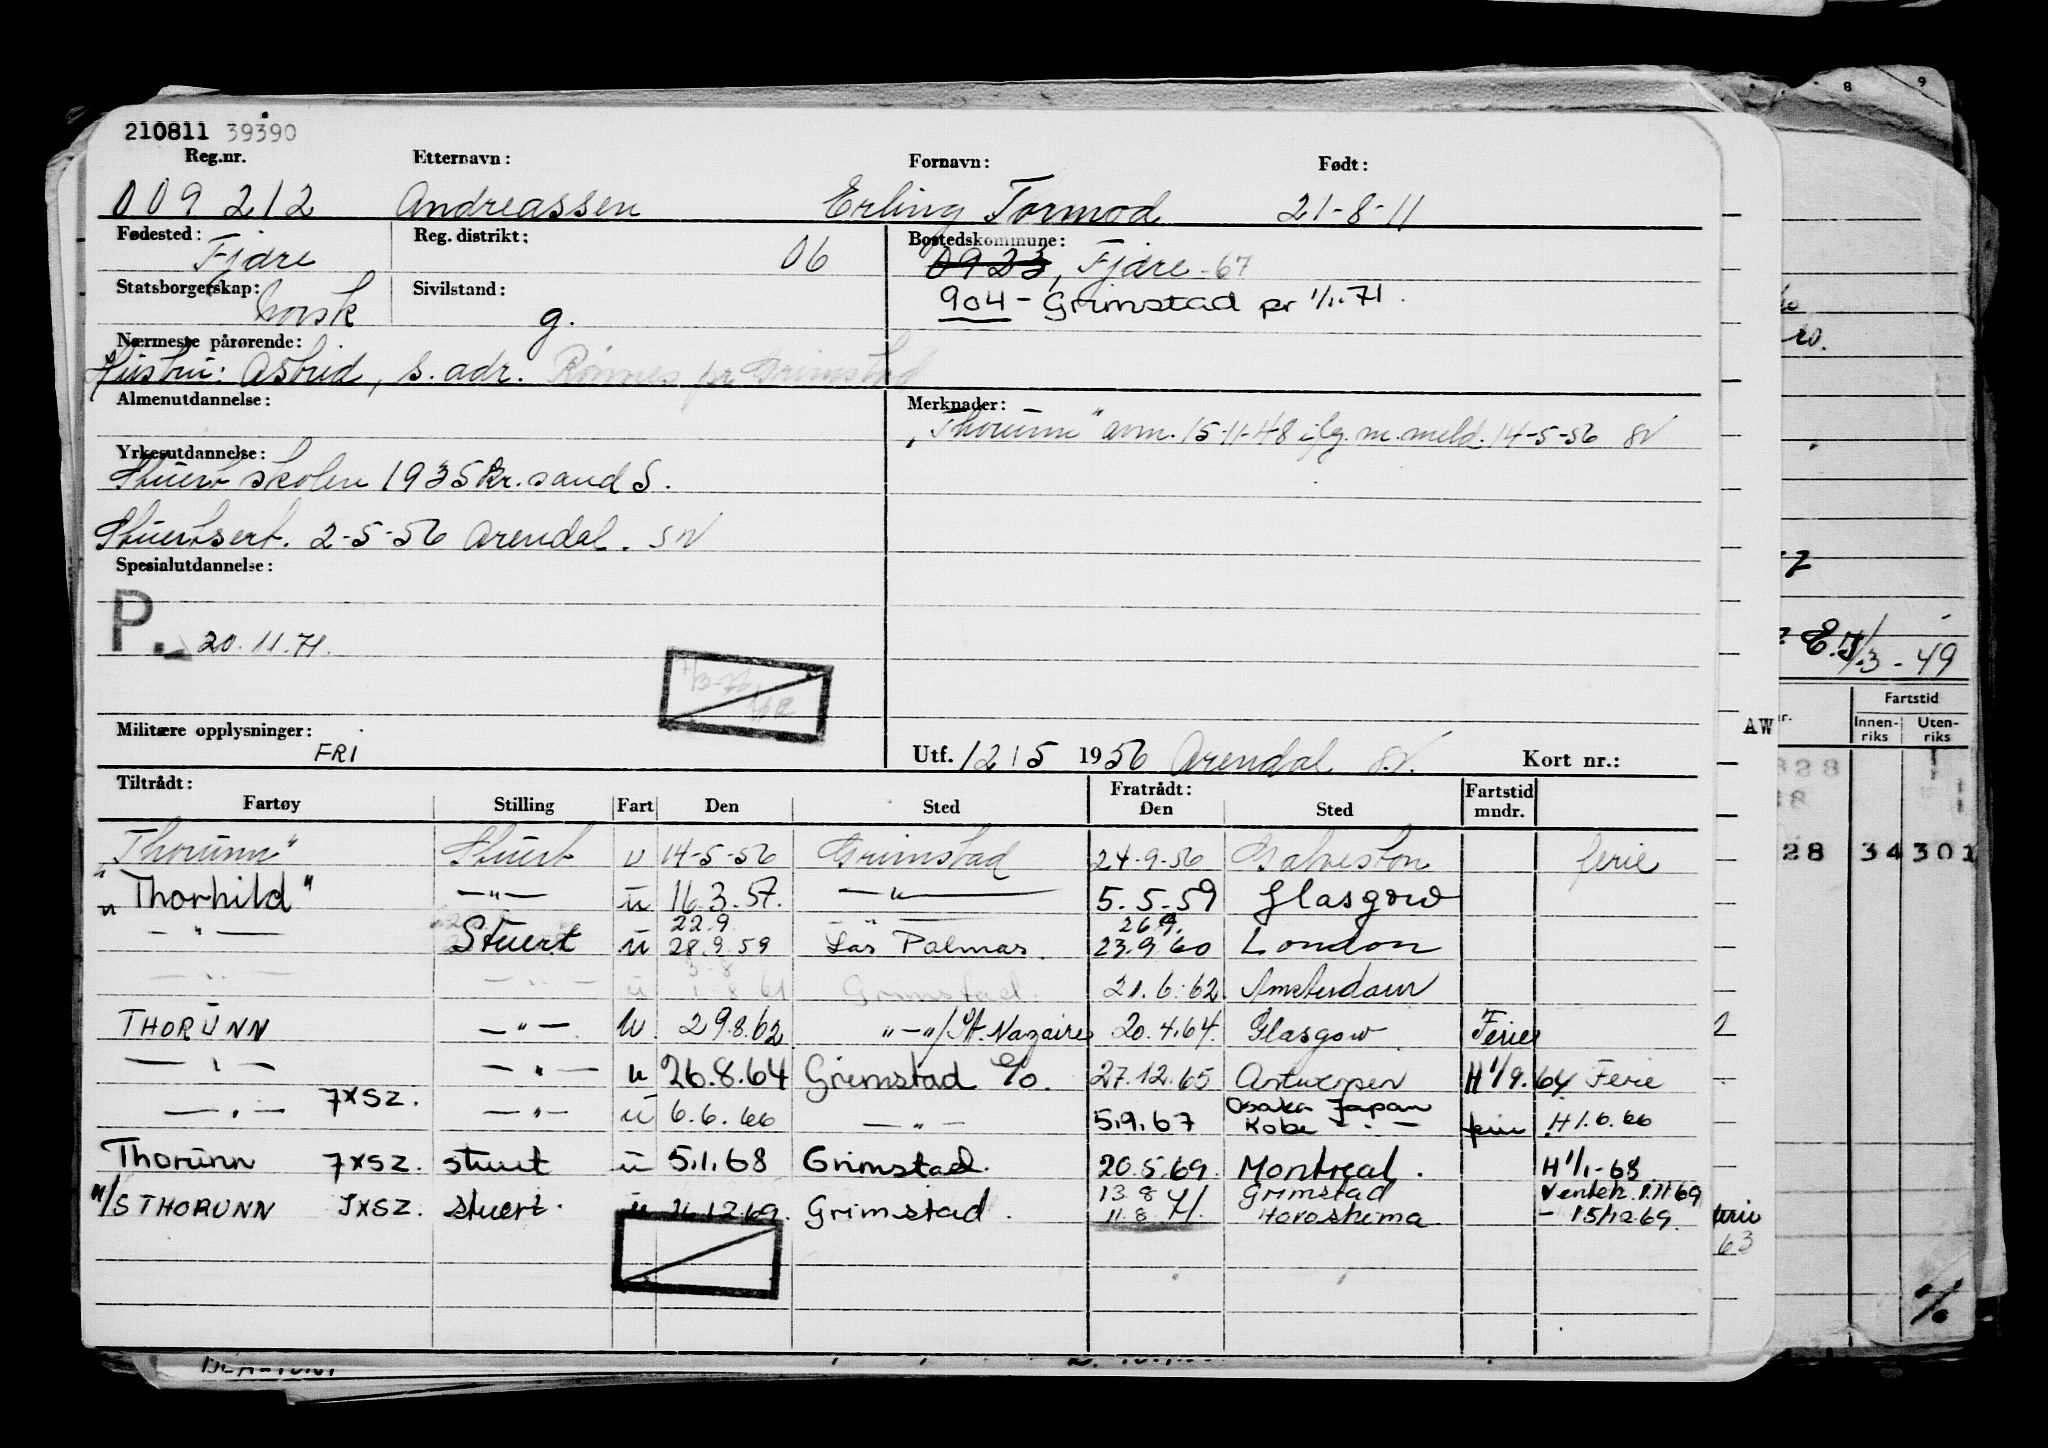 210811 39390
Reg.nr. Etternavn: Fornavn: Født:
009212 Andreassen Erling Tormod 21-8-11
Fødested: Fjære Reg. distrikt: 06 Bostedskommune: 0923, Fjære -67
Statsborgerskap: Norsk Sivilstand: g. 904 - Grimstad pr 1/1-71.
Nærmeste pårørende:
Hustru: Astrid, s. adr. Rønnes pr Grimstad
Almenutdannelse: Merknader:
"Thorunn" avm. 15-11-48 iflg. m. meld. 14-5-56 SV
Yrkesutdannelse:
Stuertskolen 1935 Kr.sand S.
Stuertsert. 2-5-56 Arendal. SV
Spesialutdannelse:
P. 20.11.71.
Militære opplysninger: FRI
Utf. 12/5 1956 Arendal SV. Kort nr.:
AW
Tiltrådt: Fratrådt:
Fartøy Stilling Fart Den Sted Den Sted Fartstid mndr.
"Thorunn" Stuert u 14-5-56 Grimstad 24-9-56 Galveston ferie
"Thorhild" —"— u 16.3.57. —"— 5.5.59 Glasgow
22.9 —"— 26.9.
—"— Stuert u 28.9.59 Las Palmas. 23.9.60 London
3-8
—"— —"— u 1.8.61 Grimstad. 21.6.62. Amsterdam
THORUNN —"— u. 29.8.62 "—"/St. Nazaire 20.4.64. Glasgow. Ferie 2
—"— —"— u 26.8.64 Grimstad 27.12.65 Antwerpen H 1/9.64 Ferie
—"— JXSZ. —"— u 6.6.66 —"— 5.9.67 Osaka Japan Kobe —"— ferie H 1.6.66
Thorunn JXSZ. stuert u 5.1.68 Grimstad. 20.5.69. Montreal. H 1/1-68
M/S THORUNN JXSZ. stuert. u 16.12.69. Grimstad. 13.8 Grimstad Ventet. 1.11.69
11.8.71. Horoshima — 15/12.69. ferie
63
ro.
E.J 1/3-49
Fartstid
Innen-riks Uten-riks
328
28 34 301